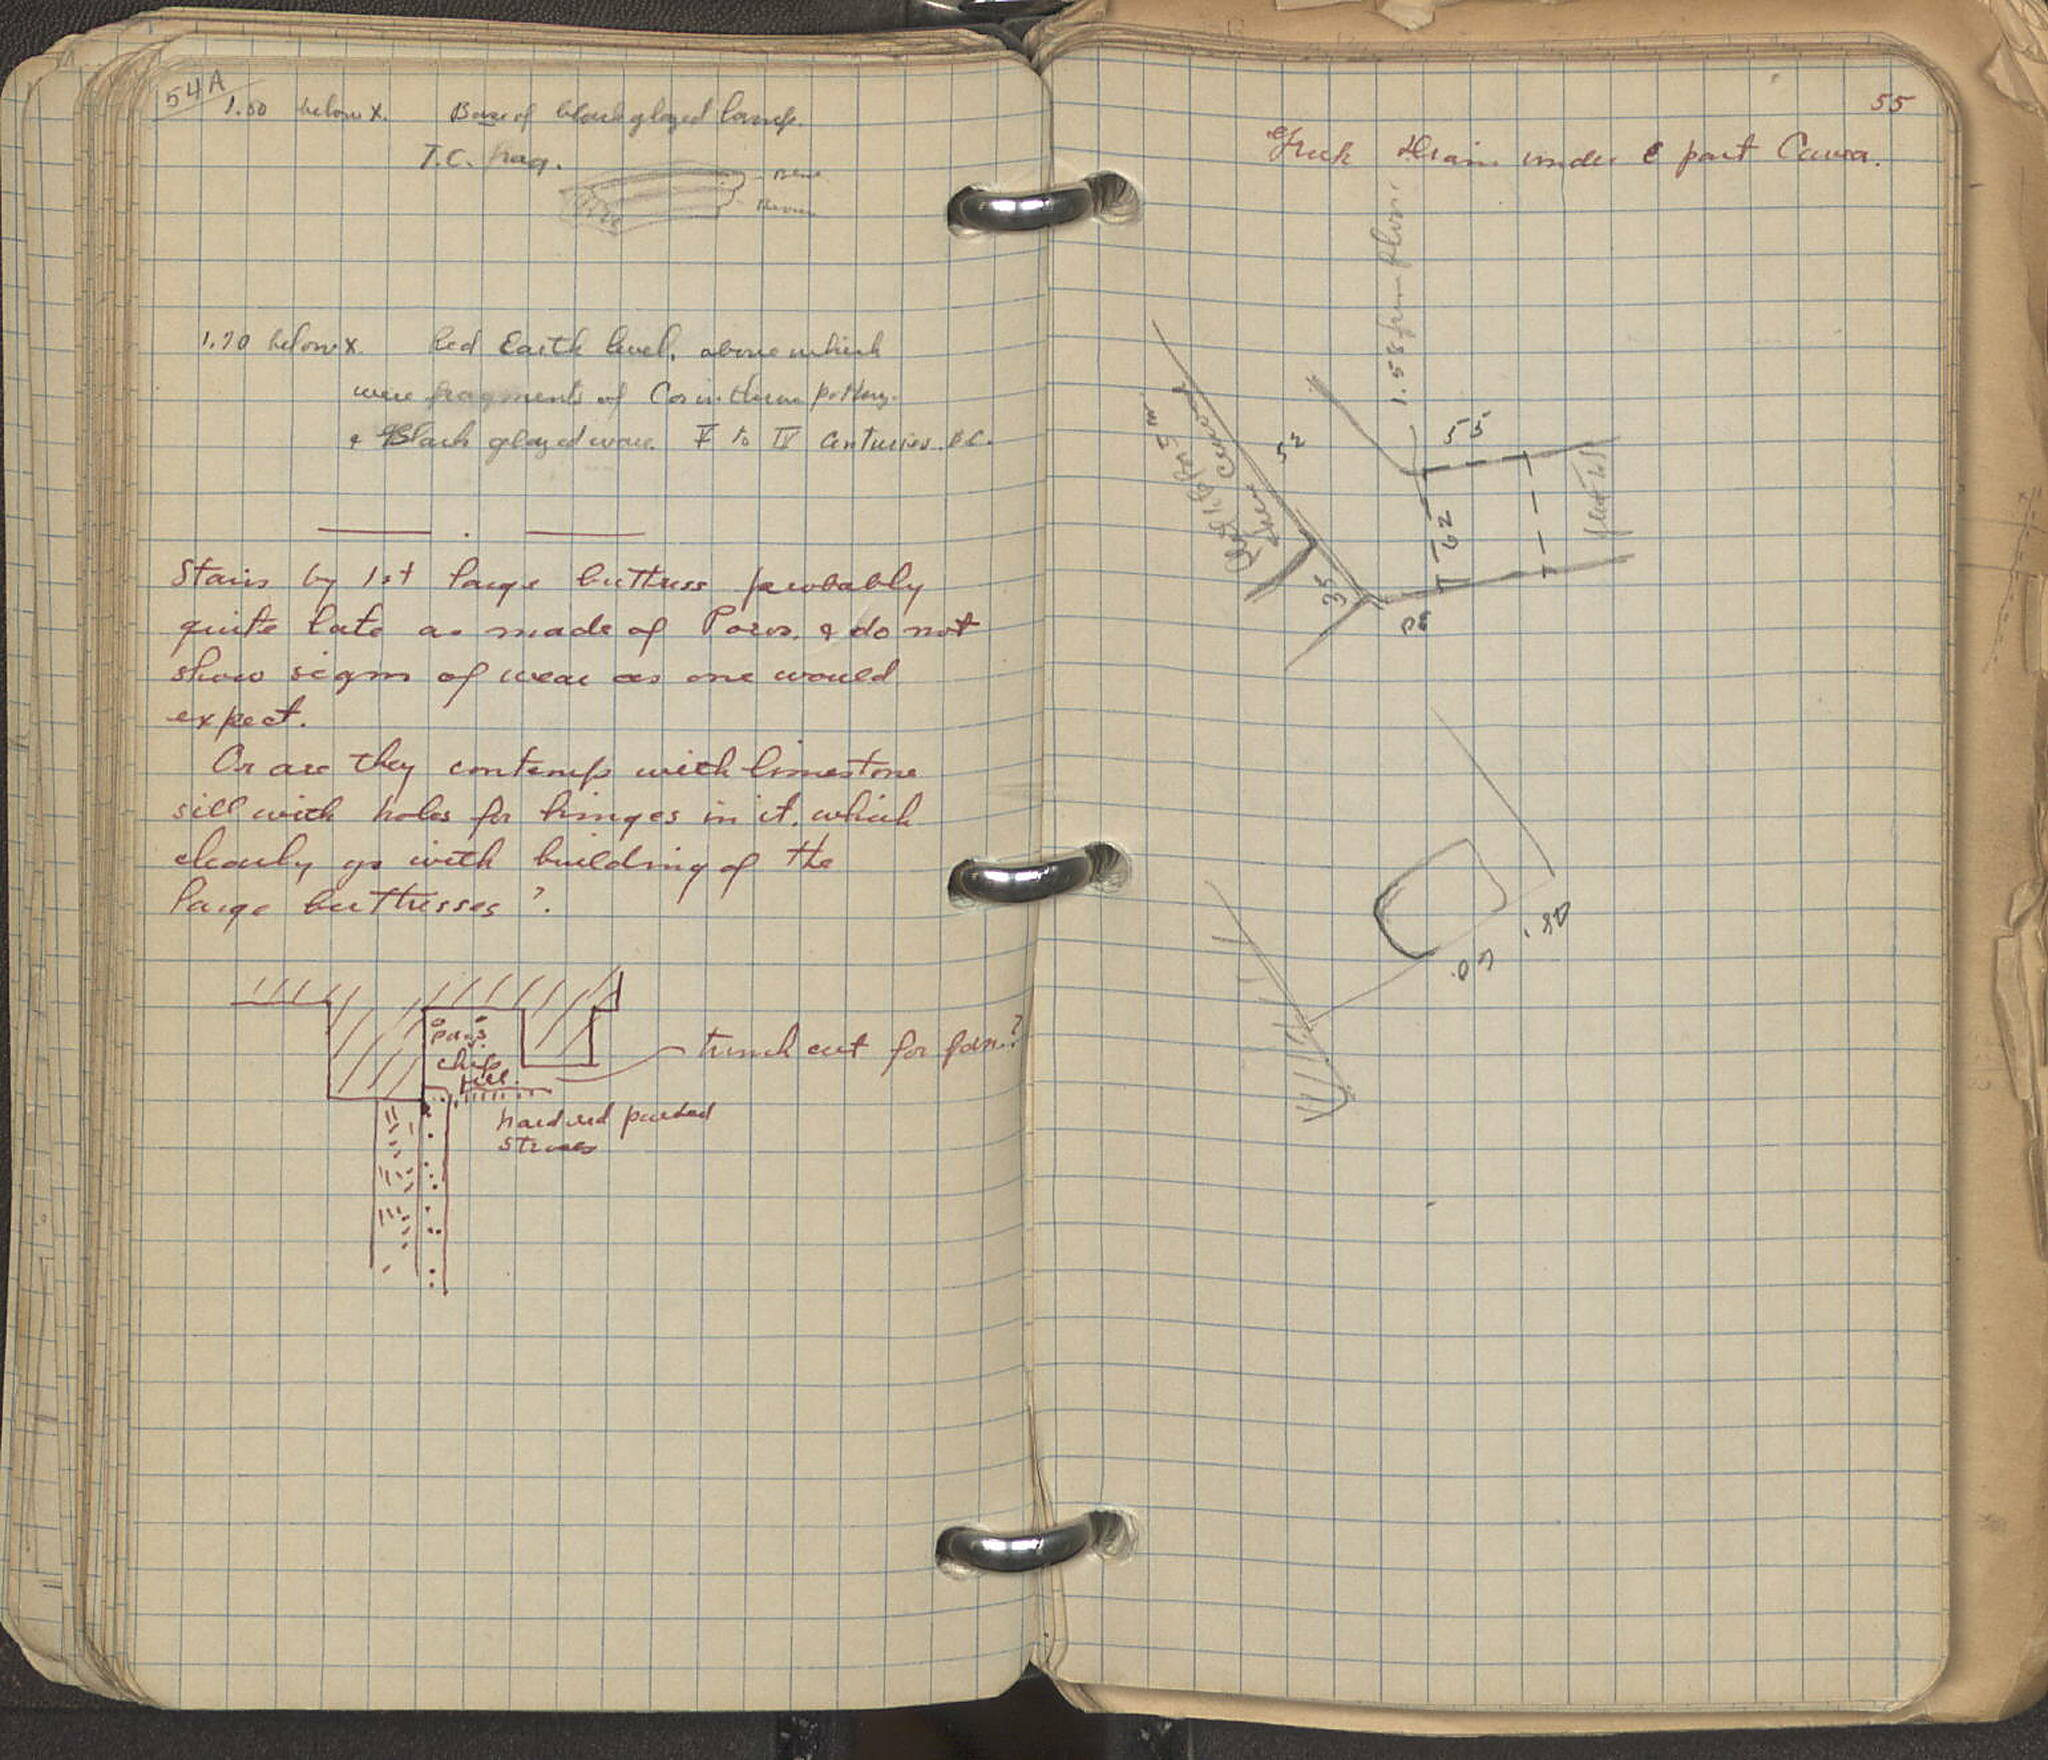 54A
1.00 below x. Base of black glazed lamp.
T.C. frag.
1.70 below x. Red Earth level, above which
were fragments of Corinthian pottery.
& Black glazed ware. V to IV Centuries. B.C.
Stairs by 1st large buttress probably
quite late as made of Poros. & do not
show signs of wear as one would
expect.
Or are they contemp with limestone
sill with holes for hinges in it. which
clearly go with building of the
large buttresses?
poros
chip
fill.
trench cut for fdn.?
hard red packed
55
Greek Drain under E part Cavea.
1.58 from
55
52
62
35